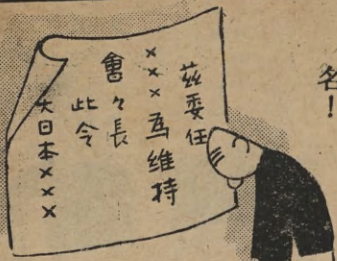 名！
茲委任
×××為維持
會々長
此令
大日本×××